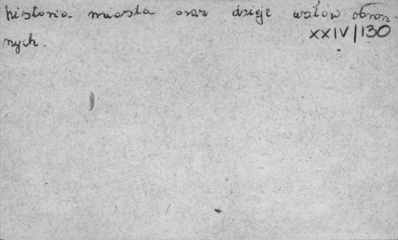 historia miasta oraz dzieje wałów obron-
XXIV/130
nych.